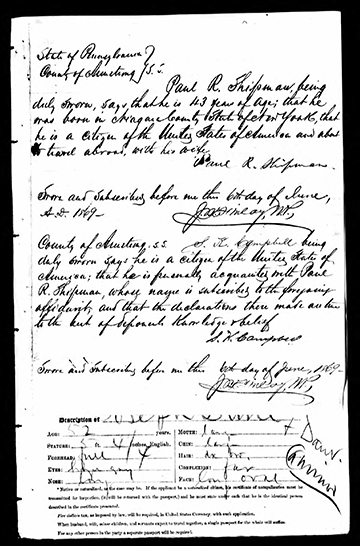 State of Pennsylvania
County of Armstrong } S.S.
Paul R. Shipman, being
duly sworn, says, that he is 43 years of Age; that he
was born in Niagara County State of New York, that
he is a Citizen of the United States of America and about
to travel abroad, with his wife.
Paul R. Shipman.
Sworn and Subscribed before me this 6th day of June,
A.D. 1869
County of Armstrong. S.S. S. H. Campbell being
duly sworn says he is a citizen of the United States of
America; that he is personally acquainted with Paul
R. Shipman, whose name is subscribed to the foregoing
affidavit, and that the declarations there made are true
to the best of deponents Knowledge & belief
Sworn and Subscribed before me this 6th day of June, 1869
Description of
AGE: 52 years. MOUTH:
STATURE: 5 feet inches, English. CHIN: large
FOREHEAD: full HAIR:
EYES: gray COMPLEXION: fair
NOSE: FACE: long oval
Notice or naturalized, as the case may be. If the applicant be a naturalized citizen, his certificate of naturalization must be
transmitted for inspection, (it will be returned with the passport,) and he must state under oath that he is the identical person
described in the certificate presented.
Five dollars tax, as imposed by law, will be required, in United States Currency, with each application.
When husband, wife, minor children, and servants expect to travel together, a single passport for the whole will suffice.
For any other person in the party a separate passport will be required.